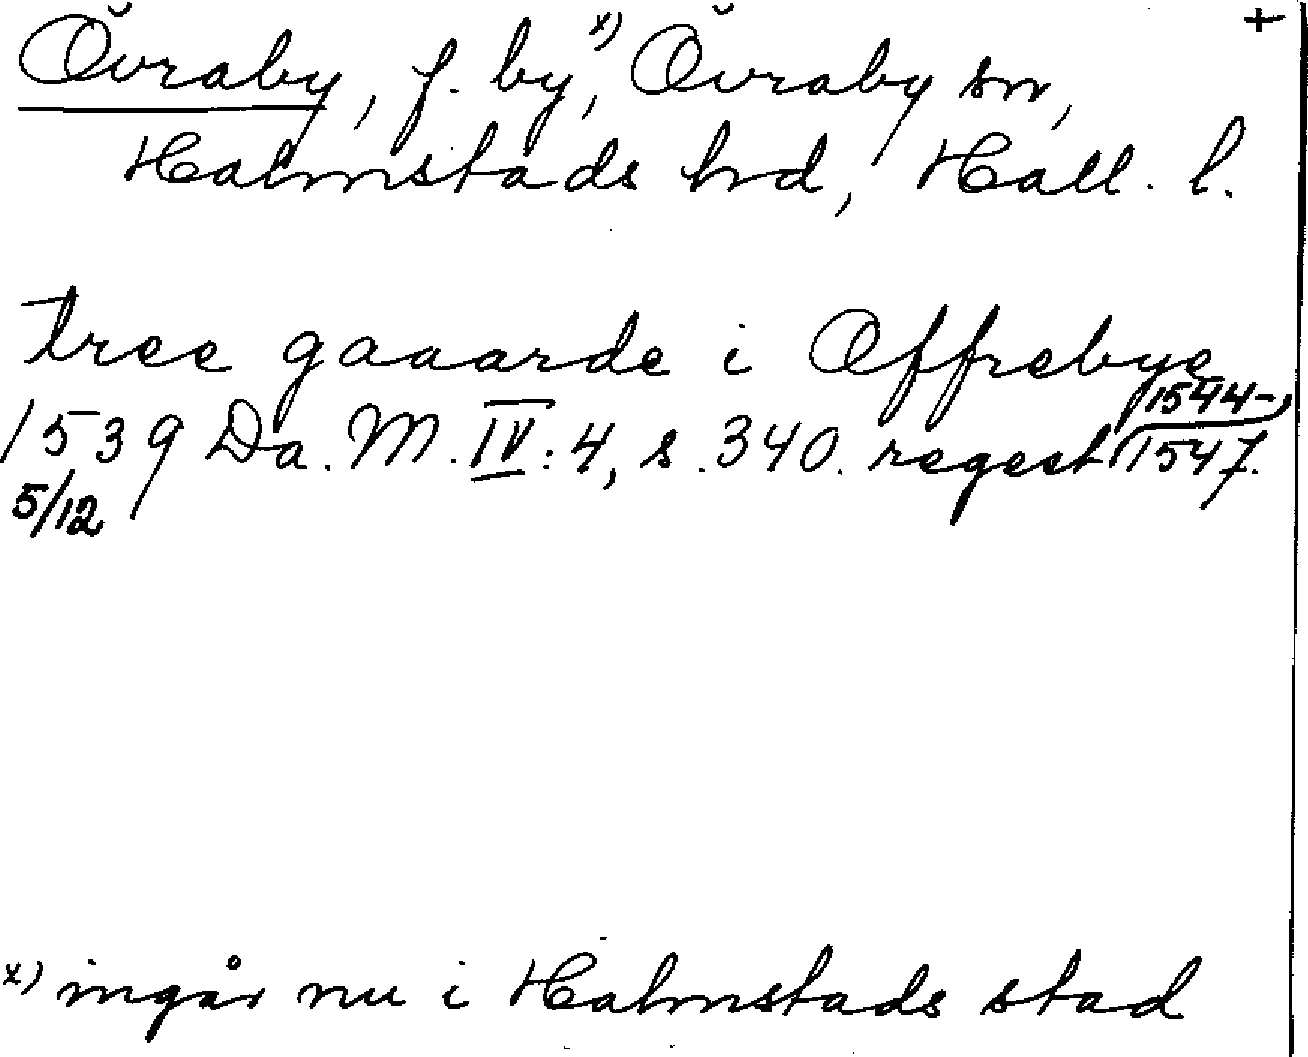 Övraby, f. by,ˣ⁾ Övraby sn, +
Halmstads hrd, Hall. l.
tree gaaarde i Offrebye
1539 Da. M. IV: 4, s. 340. regest 1544-
5/12 1547.
x) ingår nu i Halmstads stad